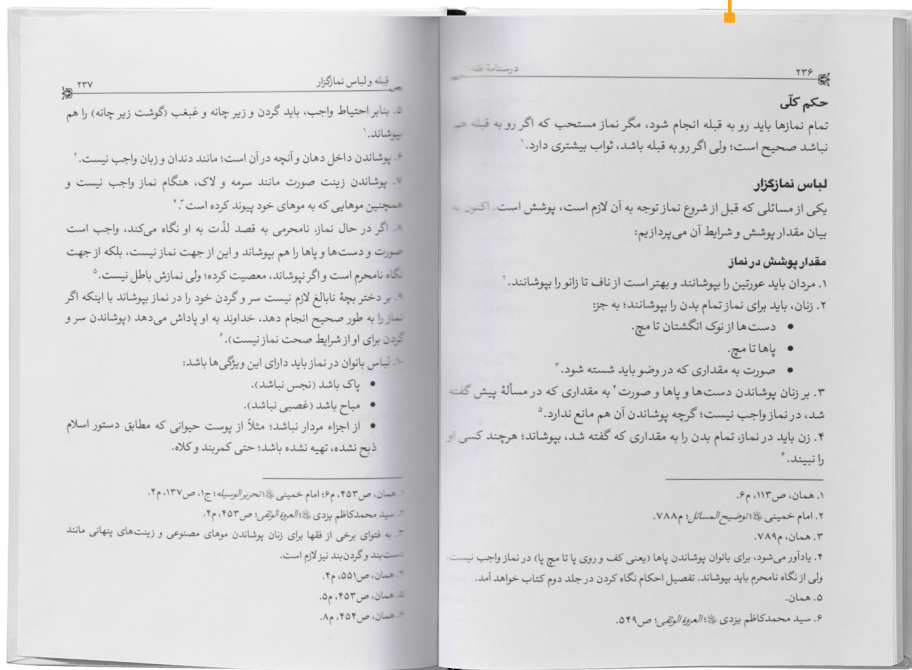 ۲۳۶
درسنامهٔ فقه
حکم کلّی
تمام نمازها باید رو به قبله انجام شود، مگر نماز مستحب که اگر رو به قبله هم
نباشد صحیح است؛ ولی اگر رو به قبله باشد، ثواب بیشتری دارد.۱
لباس نمازگزار
یکی از مسائلی که قبل از شروع نماز توجه به آن لازم است، پوشش است. اکنون به
بیان مقدار پوشش و شرایط آن می‌پردازیم:
مقدار پوشش در نماز
۱. مردان باید عورتین را بپوشانند و بهتر است از ناف تا زانو را بپوشانند.۲
۲. زنان، باید برای نماز تمام بدن را بپوشانند؛ به جز:
• دست‌ها از نوک انگشتان تا مچ.
• پاها تا مچ.
• صورت به مقداری که در وضو باید شسته شود.۳
۳. بر زنان پوشاندن دست‌ها و پاها و صورت۴ به مقداری که در مسألهٔ پیش گفته
شد، در نماز واجب نیست؛ گرچه پوشاندن آن هم مانع ندارد.۵
۴. زن باید در نماز، تمام بدن را به مقداری که گفته شد، بپوشاند؛ هرچند کسی او
را نبیند.۶
۱. همان، ص۱۱۳، م۶.
۲. امام خمینی؛ توضیح المسائل؛ م۷۸۸.
۳. همان، م۷۸۹.
۴. یادآور می‌شود، برای بانوان پوشاندن پاها (یعنی کف و روی پا تا مچ پا) در نماز واجب نیست،
ولی از نگاه نامحرم باید بپوشاند. تفصیل احکام نگاه کردن در جلد دوم کتاب خواهد آمد.
۵. همان.
۶. سید محمدکاظم یزدی؛ العروة الوثقی؛ ص۵۴۹.
قبله و لباس نمازگزار
۲۳۷
۵. بنابر احتیاط واجب، باید گردن و زیر چانه و غبغب (گوشت زیر چانه) را هم
بپوشاند.۱
۶. پوشاندن داخل دهان و آنچه در آن است؛ مانند دندان و زبان واجب نیست.۲
۷. پوشاندن زینت صورت مانند سرمه و لاک، هنگام نماز واجب نیست و
همچنین موهایی که به موهای خود پیوند کرده است.۳،۴
۸. اگر در حال نماز، نامحرمی به قصد لذّت به او نگاه می‌کند، واجب است
صورت و دست‌ها و پاها را هم بپوشاند و این از جهت نماز نیست، بلکه از جهت
نگاه نامحرم است و اگر نپوشاند، معصیت کرده؛ ولی نمازش باطل نیست.۵
۹. بر دختر بچهٔ نابالغ لازم نیست سر و گردن خود را در نماز بپوشاند با اینکه اگر
نماز را به طور صحیح انجام دهد، خداوند به او پاداش می‌دهد (پوشاندن سر و
گردن برای او از شرایط صحت نماز نیست).۶
۱۰. لباس بانوان در نماز باید دارای این ویژگی‌ها باشد:
• پاک باشد (نجس نباشد).
• مباح باشد (غصبی نباشد).
• از اجزاء مردار نباشد؛ مثلاً از پوست حیوانی که مطابق دستور اسلام
ذبح نشده، تهیه نشده باشد؛ حتی کمربند و کلاه.
۱. همان، ص۴۵۳، م۶؛ امام خمینی؛ تحریرالوسیله؛ ج۱، ص۱۳۷، م۴.
۲. سید محمدکاظم یزدی؛ العروة الوثقی؛ ص۴۵۳، م۴.
۳. به فتوای برخی از فقها برای زنان پوشاندن موهای مصنوعی و زینت‌های پنهانی مانند
دست‌بند و گردن‌بند نیز لازم است.
۴. همان، ص۵۵۱، م۴.
۵. همان، ص۴۵۳، م۵.
۶. همان، ص۴۵۴، م۸.